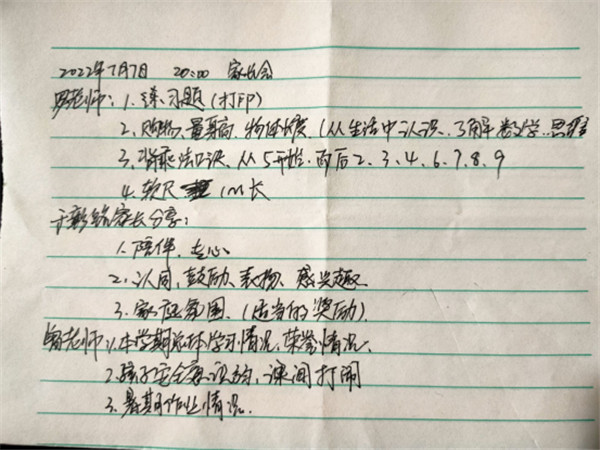 2022年7月7日 20:00 家长会
罗老师：1.练习题(打印)
2.购物、量身高、物体长度(从生活中认识、了解数学、思维
3.背乘法口诀、从5开始、而后2、3、4、6、7、8、9
4.软尺 1m长
家长分享：
1.陪伴、走心
2.认同、鼓励、表扬、感兴趣
3.家庭氛围、(适当的奖励)
老师：1.本学期总体学习情况、荣誉情况、
2.孩子安全意识、课间打闹
3.暑期作业情况.